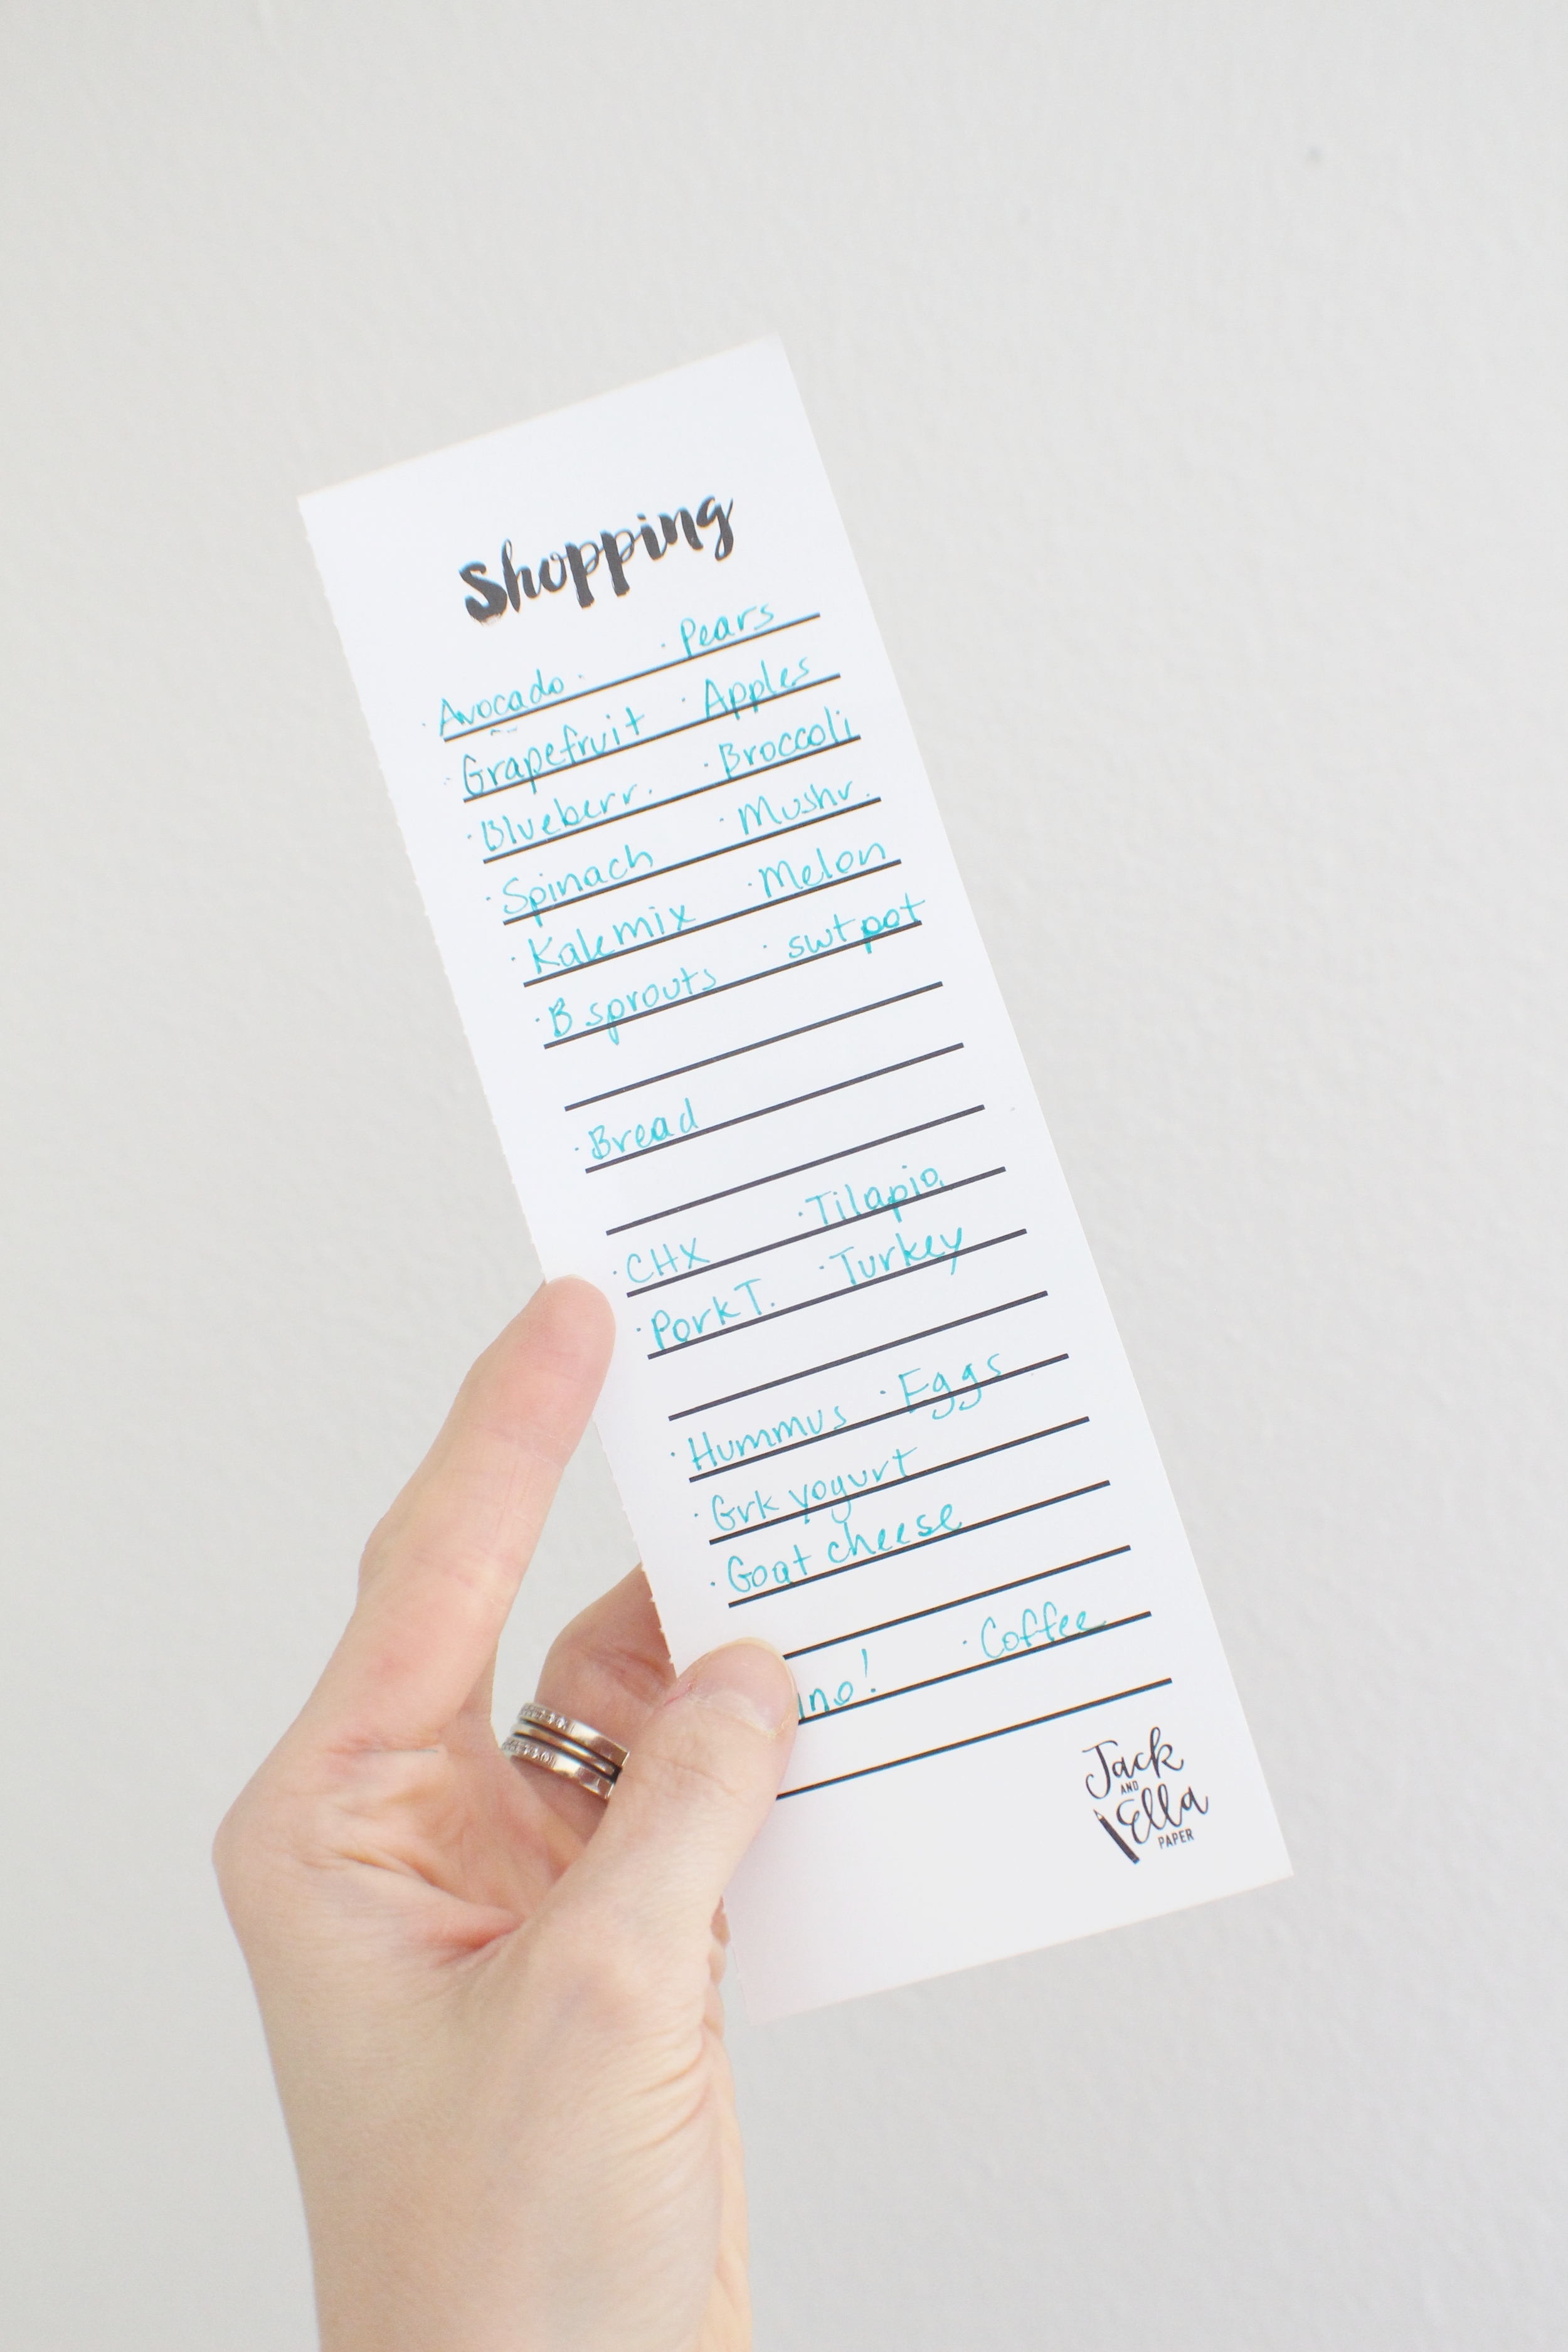 Shopping
· Avocado · Pears
· Grapefruit · Apples
· Blueberr. · Broccoli
· Spinach · Mushr.
· Kale mix · Melon
· B sprouts · swt pot
· Bread
· CHX · Tilapia
· Pork T. · Turkey
· Hummus · Eggs
· Grk yogurt
· Goat cheese
· Coffee
Jack
AND
Ella
PAPER